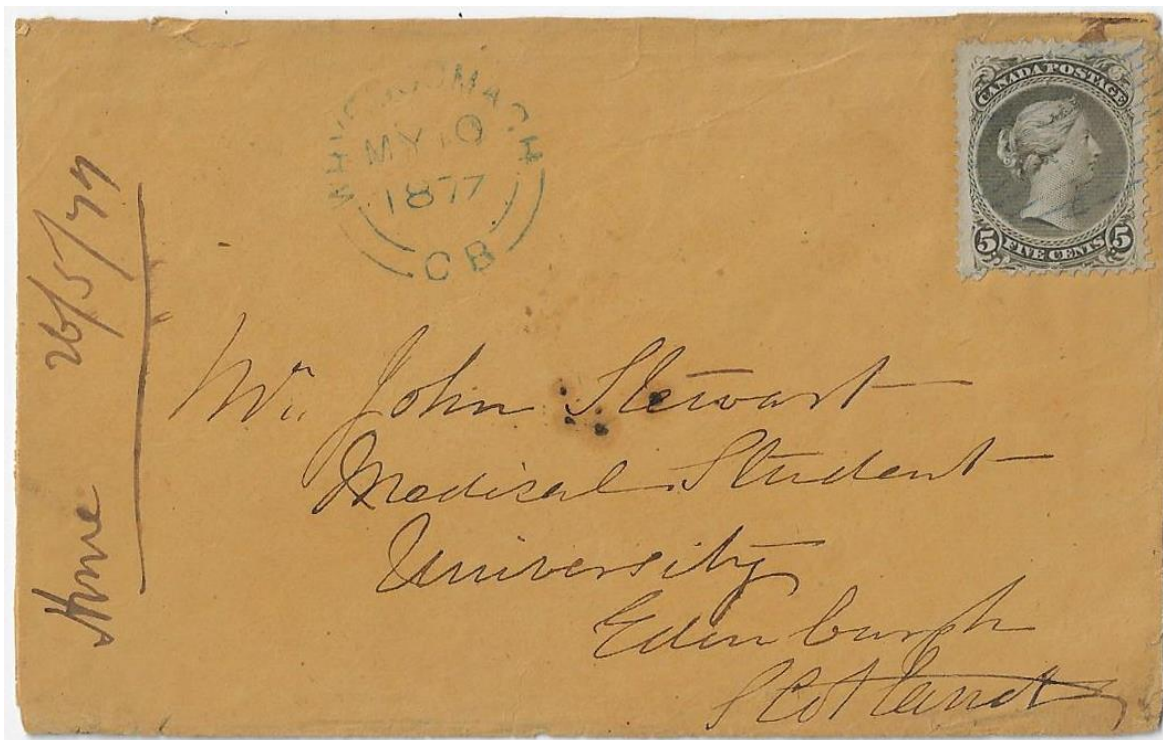 MY 10
1877
C B
CANADA POSTAGE
5 FIVE CENTS 5
Home 26/5/77
Mr. John Stewart
Medical Student
University
Edinburgh
Scotland